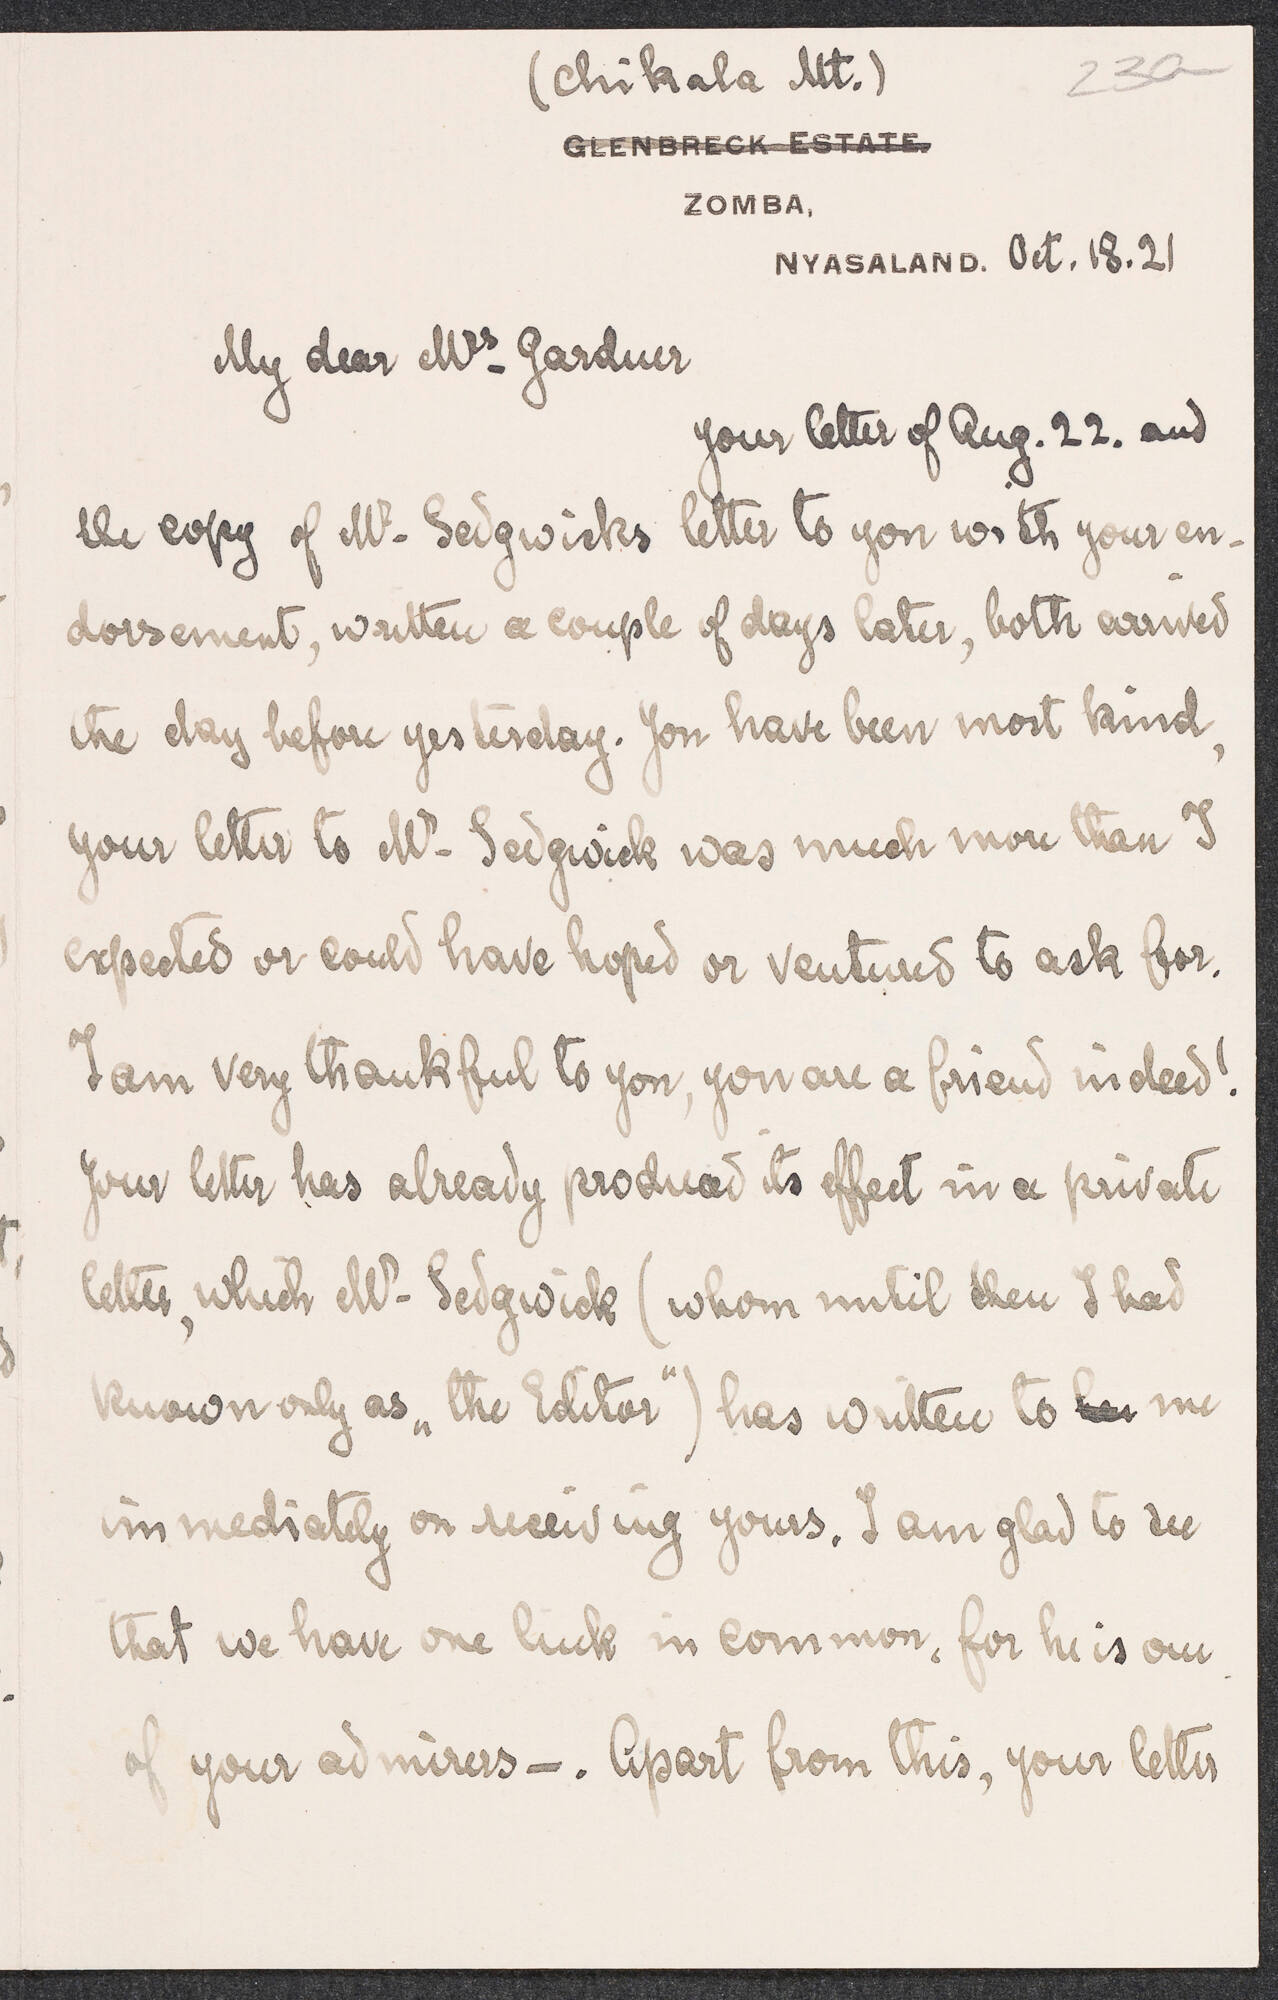 (Chikala Mt.)
23a
GLENBRECK ESTATE.
ZOMBA,
NYASALAND. Oct. 18. 21
My dear Mrs. Gardner
your letter of Aug. 22. and
the copy of Mr. Sedgwicks letter to you with your en-
dorsement, written a couple of days later, both arrived
the day before yesterday. You have been most kind,
your letter to Mr. Sedgwick was much more than I
expected or could have hoped or ventured to ask for.
I am very thankful to you, you are a friend indeed!
Your letter has already produced its effect in a private
letter, which Mr. Sedgwick (whom until then I had
known only as „the Editor") has written to me
immediately on receiving yours. I am glad to see
that we have one link in common, for he is one
of your admirers —. Apart from this, your letter